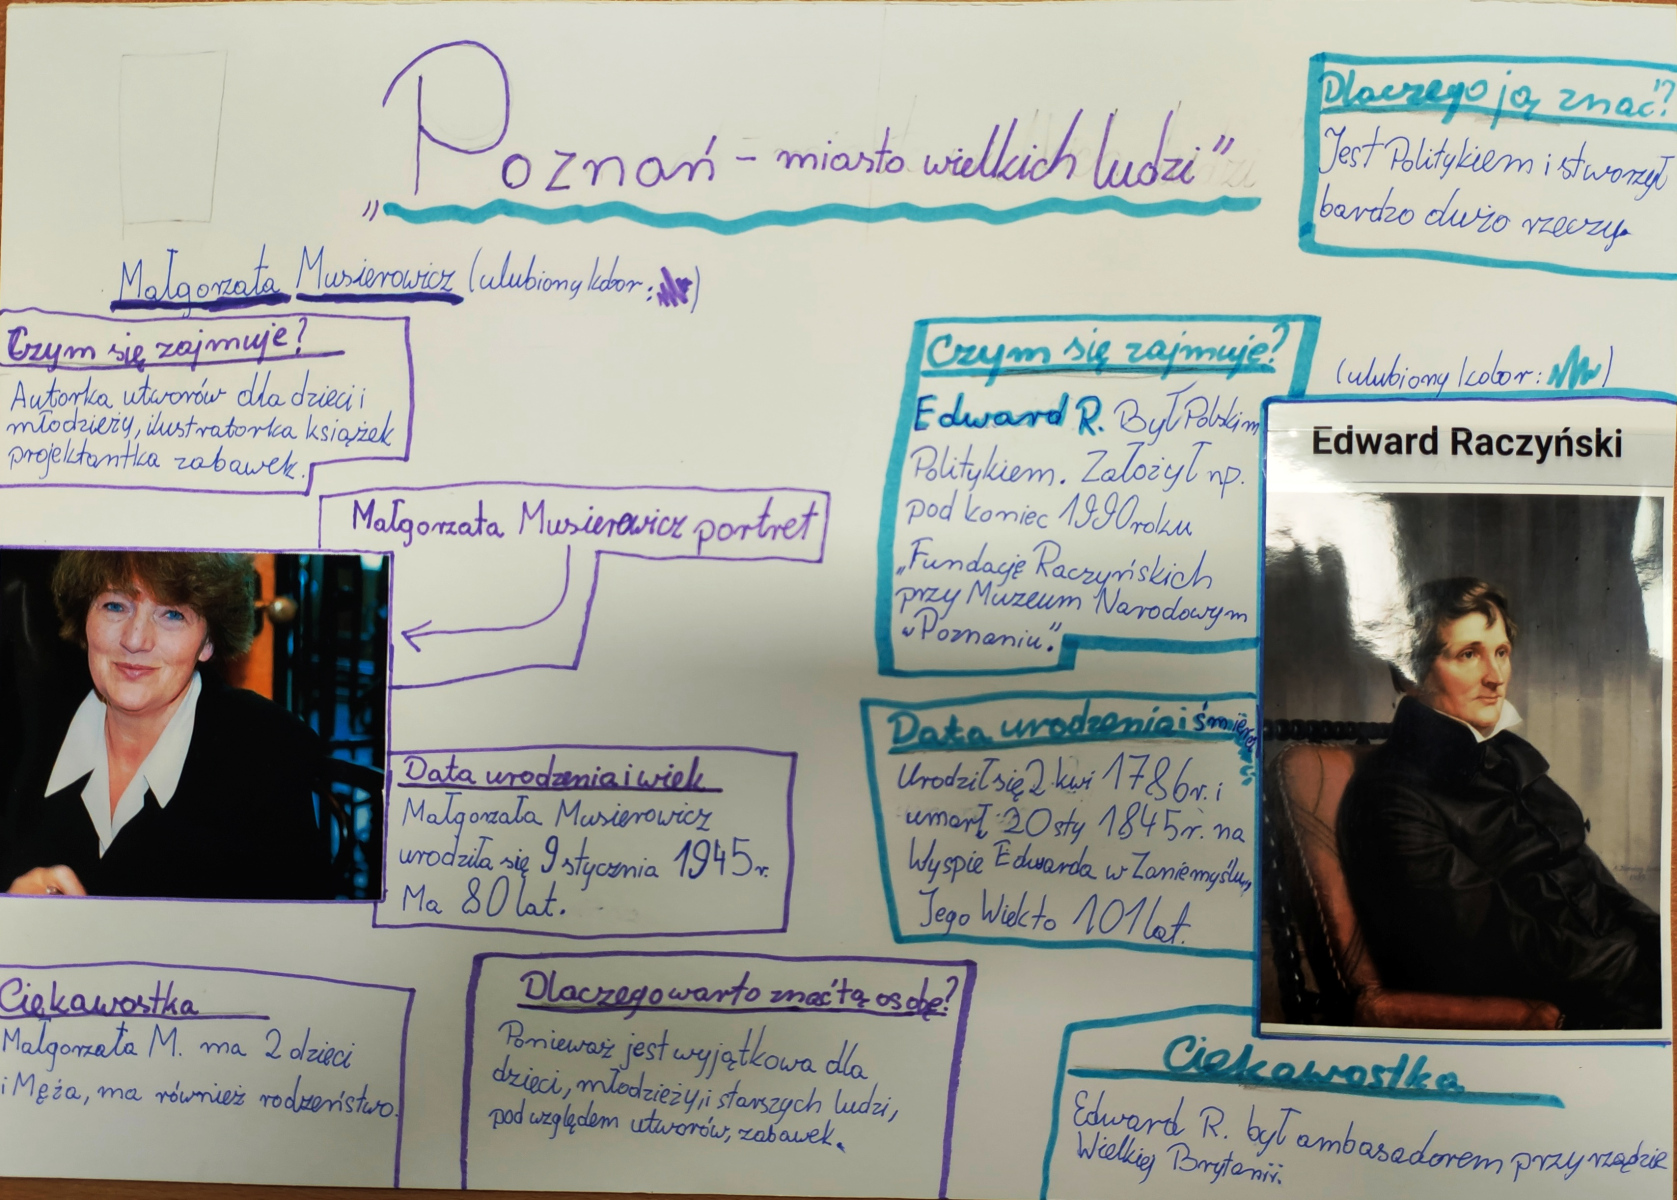 „Poznań - miasto wielkich ludzi”
Małgorzata Musierowicz (ulubiony kolor: )
Czym się zajmuje?
Autorka utworów dla dzieci i
młodzieży, ilustratorka książek
projektantka zabawek.
Małgorzata Musierowicz portret
Data urodzenia i wiek
Małgorzata Musierowicz
urodziła się 9 stycznia 1945r.
Ma 80 lat.
Ciekawostka
Małgorzata M. ma 2 dzieci
i Męża, ma również rodzeństwo.
Dlaczego warto znać tą osobę?
Ponieważ jest wyjątkowa dla
dzieci, młodzieży, i starszych ludzi,
pod względem utworów, zabawek.
Dlaczego ją znać?
Jest Politykiem i stworzył
bardzo dużo rzeczy.
Czym się zajmuje?
Edward R. Był Polskim
Politykiem. Założył np.
pod koniec 1990 roku
„Fundację Raczyńskich
przy Muzeum Narodowym
w Poznaniu”.
(ulubiony kolor: )
Edward Raczyński
Data urodzenia i śmierci
Urodził się 2 kwi 1786r. i
umarł 20 sty 1845r. na
Wyspie Edwarda w Zaniemyślu,
Jego Wiek to 101 lat.
Ciekawostka
Edward R. był ambasadorem przy rządzie
Wielkiej Brytanii.